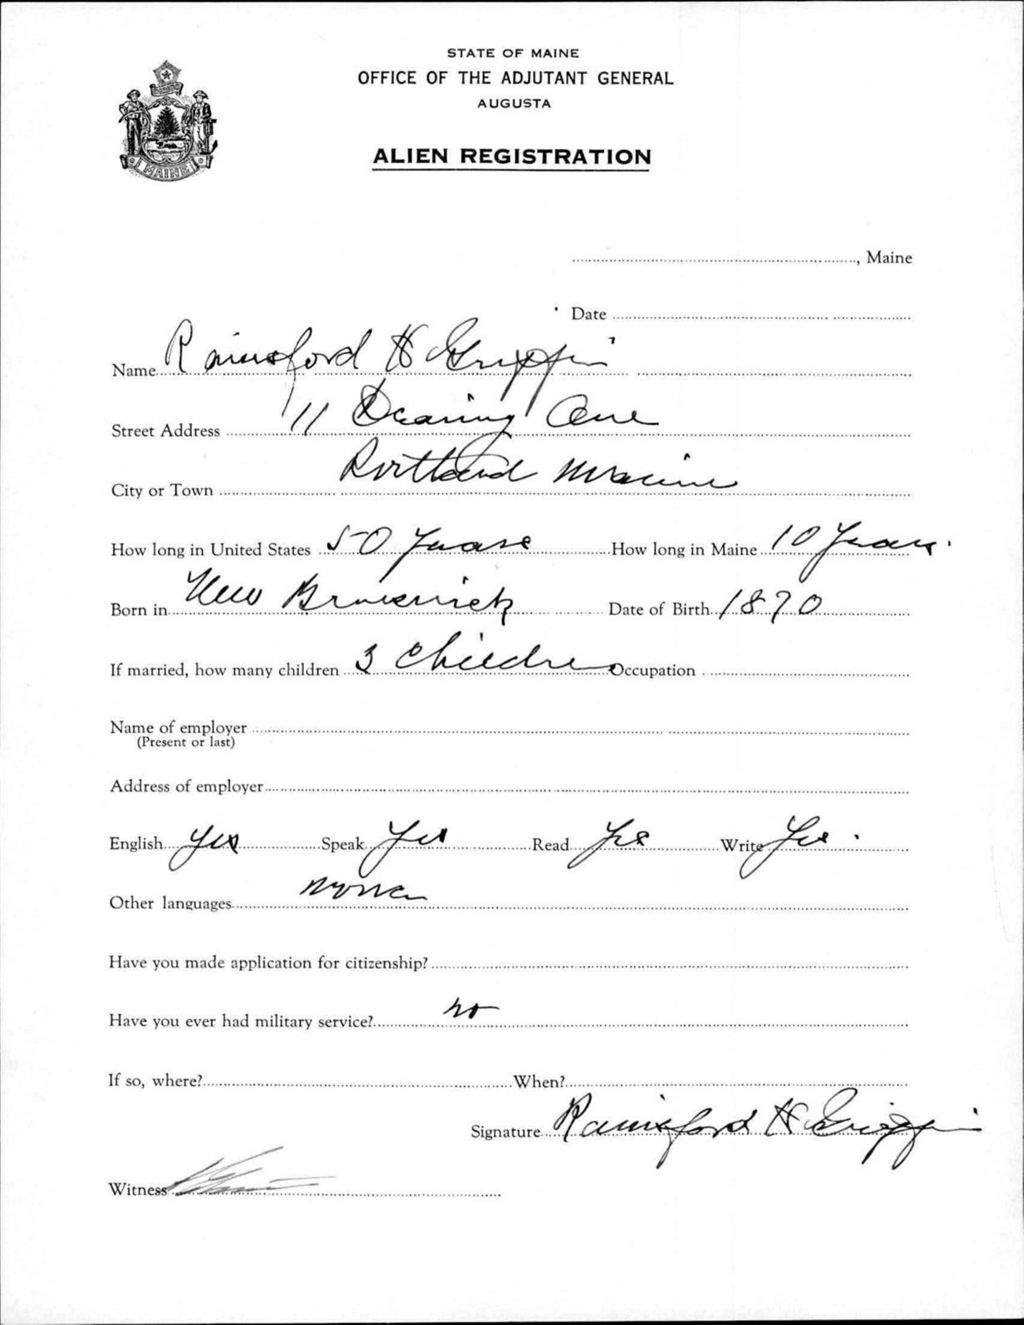 STATE OF MAINE
OFFICE OF THE ADJUTANT GENERAL
AUGUSTA
ALIEN REGISTRATION
MAINE
, Maine
Date
Name Rainsford H Griffin
Street Address 11 Dearing Ave
City or Town Portland Maine
How long in United States 50 Years How long in Maine 10 Years.
Born in New Brunswick Date of Birth 1870
If married, how many children 3 Children Occupation
Name of employer
(Present or last)
Address of employer
English yes Speak Yes Read Yes Write Yes.
Other languages none
Have you made application for citizenship?
Have you ever had military service? no
If so, where? When?
Signature Rainsford H Griffin
Witness